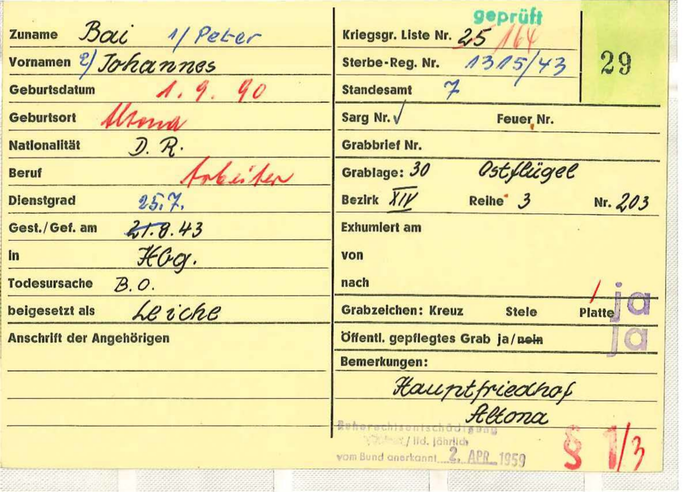 geprüft
Zuname Bai 1/ Peter
Vornamen 2/ Johannes
Geburtsdatum 1. 9. 90
Geburtsort Altona
Nationalität D. R.
Beruf Arbeiter
Dienstgrad 25.7.
Gest./Gef. am 21.8.43
in Hbg.
Todesursache B. O.
beigesetzt als Leiche
Anschrift der Angehörigen
Kriegsgr. Liste Nr. 25 /164
Sterbe-Reg. Nr. 1315/43
29
Standesamt 7
Sarg Nr. √ Feuer Nr.
Grabbrief Nr.
Grablage: 30 Ostflügel
Bezirk XIV Reihe 3 Nr. 203
Exhumiert am
von
nach
Grabzeichen: Kreuz Stele Platte / ja
Öffentl. gepflegtes Grab ja/nein ja
Bemerkungen:
Hauptfriedhof
Altona
Ruherechtsentschädigung
/ lfd. jährlich
vom Bund anerkannt 2. APR. 1959
§ 1/3